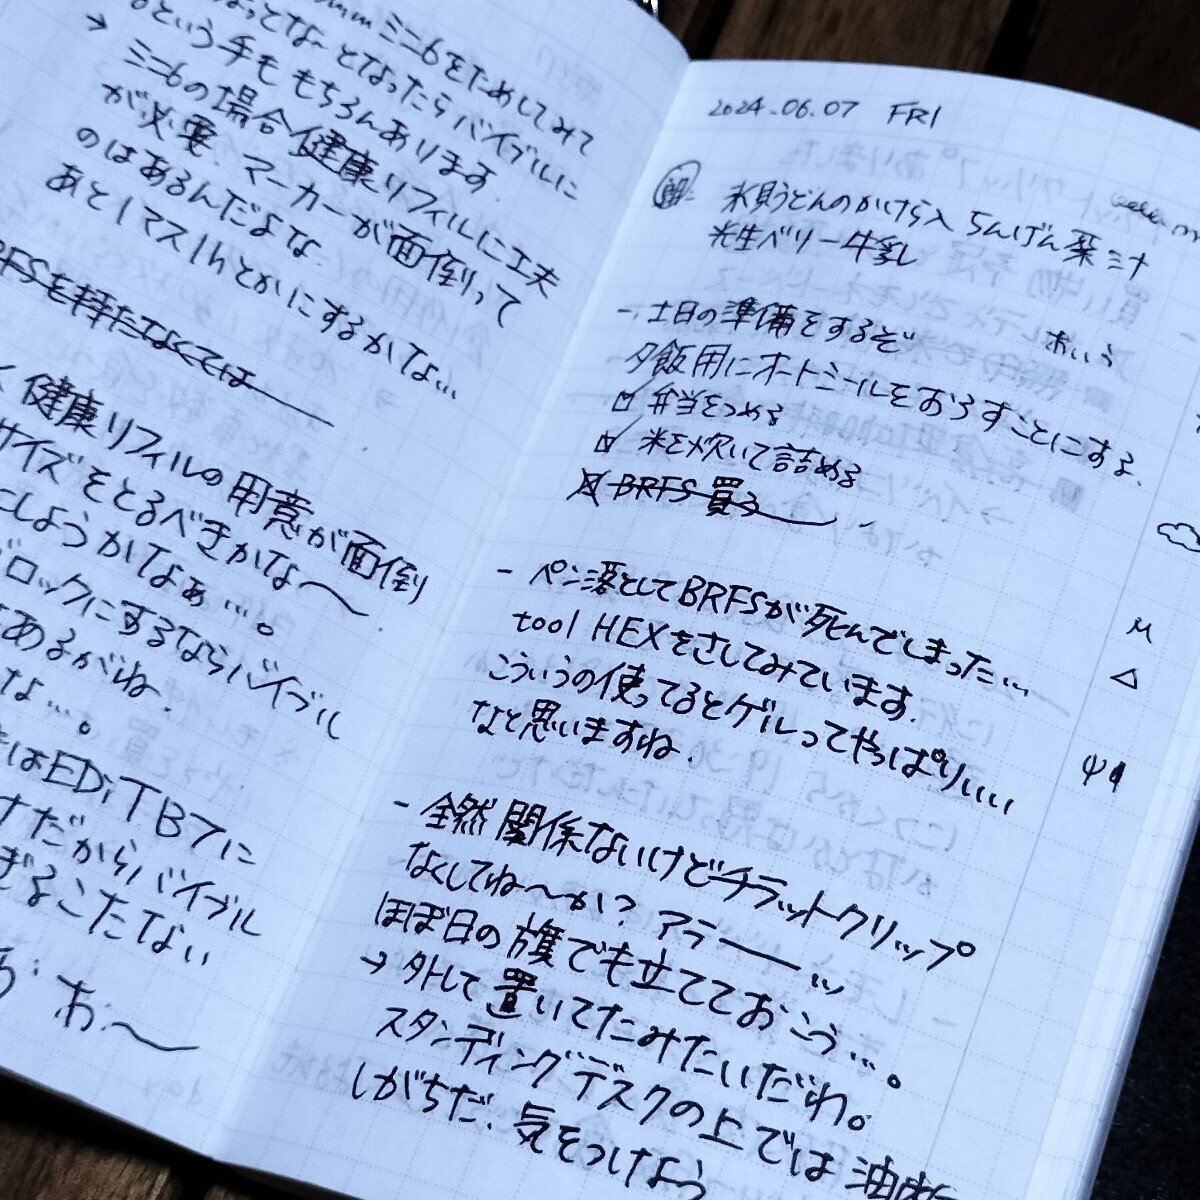 ミニ6をためしてみて
となったらバイブルに
という手ももちろんあります
→ ミニ6の場合健康リフィルに工夫
が必要。マーカーが面倒って
のはあるんだよな。
あと1マス1hとかにするかな…
BRFSを持たなくては
く健康リフィルの用意が面倒
サイズをとるべきかな〜
にしようかなぁ…。
ブロックにするならバイブル
あるがね。
な…。
はEDiT B7に
だからバイブル
こたない
お〜
2024.06.07 FRI
朝 氷見うどんのかけら入ちんげん菜ミナ
光生ベリー牛乳
- 土日の準備をするぞ おいう
夕飯用にオートミールをおろすことにする。
☑ 弁当をつめる
☑ 米を炊いて詰める
BRFS買う
- ペン落としてBRFSが死んでしまった…
tool HEXをさしてみています。
こういうの使ってるとゲルってやっぱりいい
なと思いますね。
- 全然関係ないけどチラットクリップ
なくしてね〜か? アラーーッ
ほぼ日の旗でも立てておこう…。
→ 外して置いてたみたいだわ。
スタンディングデスクの上では油断
しがちだ。気をつけよう